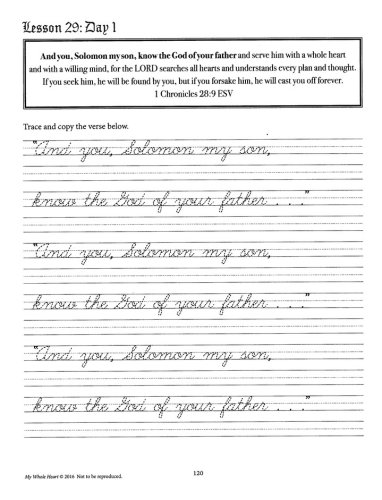 Lesson 29: Day 1
And you, Solomon my son, know the God of your father and serve him with a whole heart
and with a willing mind, for the LORD searches all hearts and understands every plan and thought.
If you seek him, he will be found by you, but if you forsake him, he will cast you off forever.
1 Chronicles 28:9 ESV
Trace and copy the verse below.
"And you, Solomon my son,
know the God of your father . . ."
"And you, Solomon my son,
know the God of your father . . ."
"And you, Solomon my son,
know the God of your father . . ."
120
My Whole Heart © 2016 Not to be reproduced.